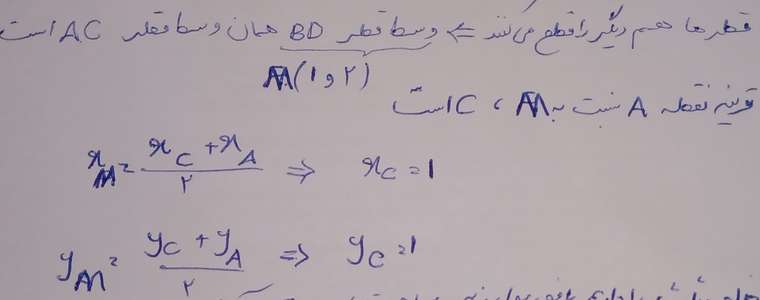 قطرها همدیگر را قطع می‌کنند ⇒ وسط قطر BD همان وسط قطر AC است
M(۱ و ۲)
قرینه نقطه A نسبت به M ، C است
x_M = (x_C + x_A)/۲ ⇒ x_C = ۱
y_M = (y_C + y_A)/۲ ⇒ y_C = ۱